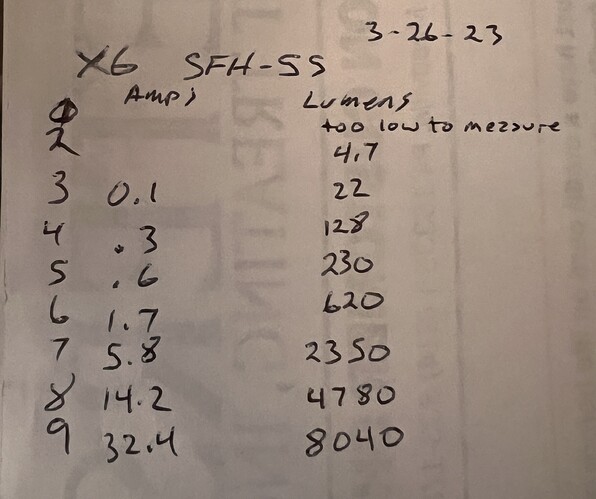 3-26-23
X6 SFH-55
Amps Lumens
1 too low to mezsure
2 4.7
3 0.1 22
4 .3 128
5 .6 230
6 1.7 620
7 5.8 2350
8 14.2 4780
9 32.4 8040